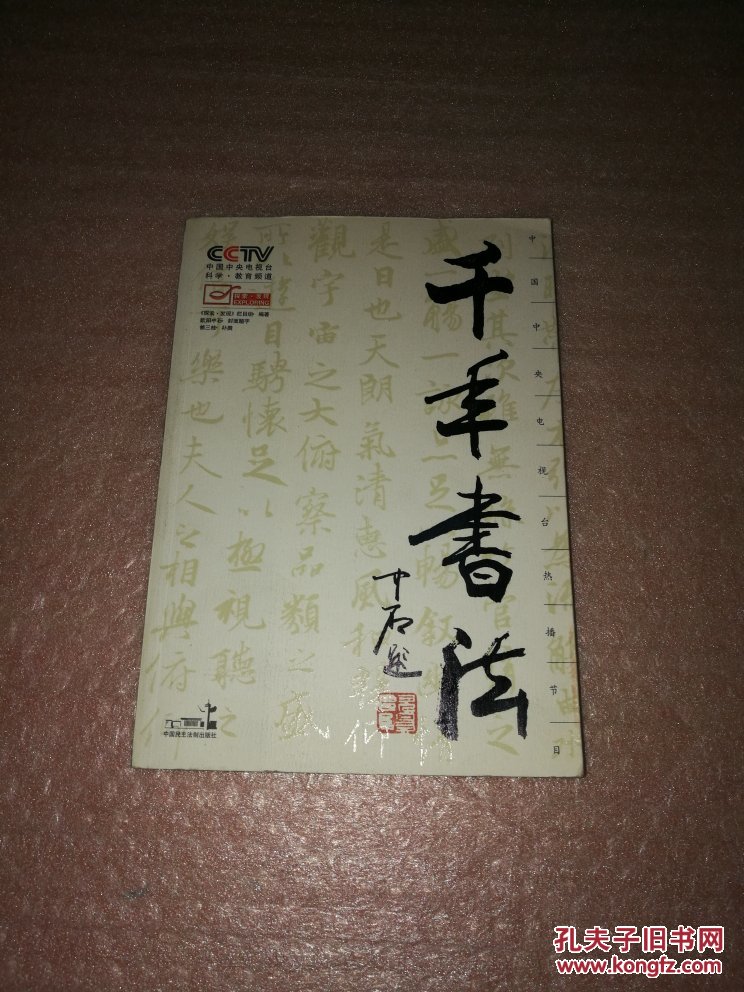 CCTV
中国中央电视台
科学·教育频道
探索·发现
EXPLORING
《探索·发现》栏目组·编著
欧阳中石·封面题字
中国民主法制出版社
千年书法
中石题
中国中央电视台热播节目
觀宇宙之大俯察品類之盛
是日也天朗氣清惠風和暢仰
遊目騁懷足以極視聽之
樂也夫人之相與俯仰
盛一觴一詠亦足暢叙幽情
孔夫子旧书网
www.kongfz.com